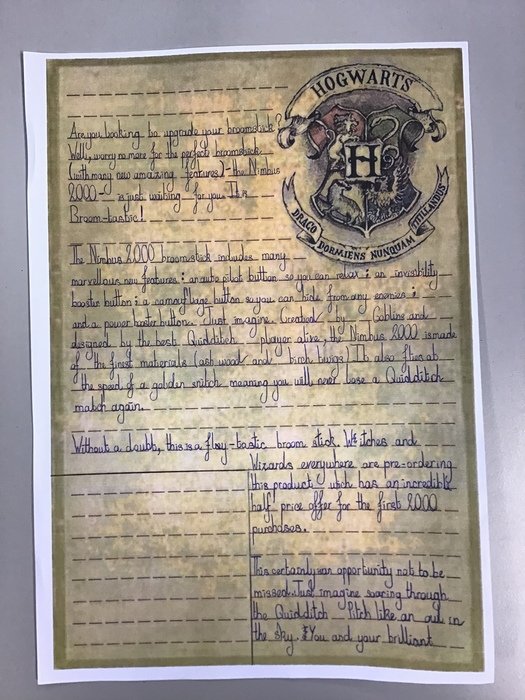 HOGWARTS
H
DRACO DORMIENS NUNQUAM TITILLANDUS
Are you looking to upgrade your broomstick?
Well, worry no more for the perfect broomstick
(with many new amazing features)-the Nimbus
2000- is just waiting for you. It is
Broom-tastic!
The Nimbus 2000 broomstick includes many
marvellous new features: an auto pilot button so you can relax; an invisibility
booster button; a camouflage button so you can hide from any enemies;
and a power booster button. Just imagine. Created by Goblins and
designed by the best Quidditch player alive, the Nimbus 2000 is made
of the finest materials (ash wood and birch twigs). It also flies at
the speed of a golden snitch meaning you will never lose a Quidditch
match again.
Without a doubt, this is a flay-tastic broom stick. Witches and
Wizards everywhere are pre-ordering
this product which has an incredible
half price offer for the first 2000
purchases.
This certainly is an opportunity not to be
missed. Just imagine soaring through
the Quidditch Pitch like an owl in
the sky. You and your brilliant